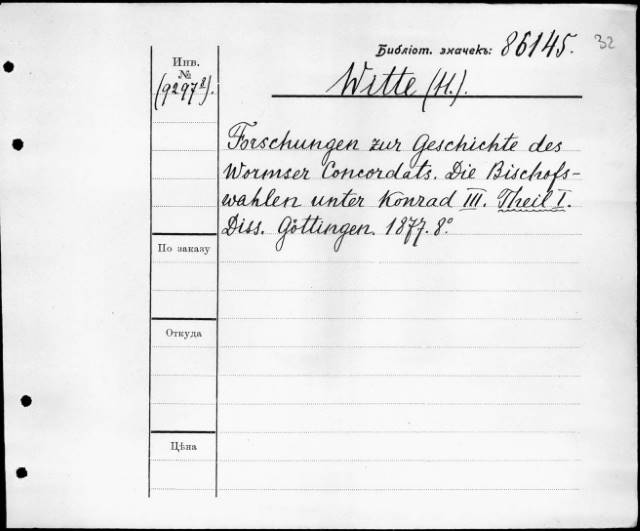 Библіот. значекъ: 86145. 32
Инв.
№
(9297⁸).
Witte (H.).
Forschungen zur Geschichte des
Wormser Concordats. Die Bischofs-
wahlen unter Konrad III. Theil I.
Diss. Göttingen. 1877. 8°
По заказу
Откуда
Цѣна